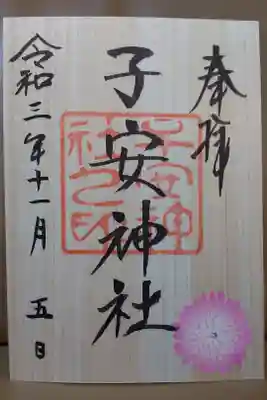 奉拝
子安神社
子安神社之印
令和三年十一月五日